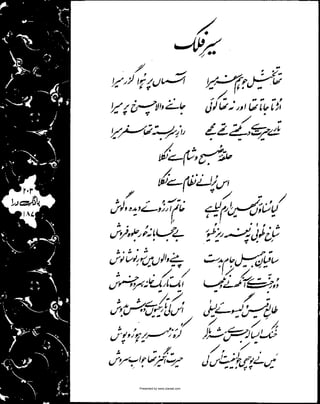 سیرِ فلک
تھا تخیل جو ہم سفر میرا آسماں پر ہوا گزر میرا
اڑتا جاتا تھا اور نہ تھا کوئی جاننے والا چرخ پر میرا
تارے حیرت سے دیکھتے تھے مجھے رازِ سربستہ تھا سفر میرا
حلقۂ صبح و شام سے نکلا
اس پرانے نظام سے نکلا
کیا سناؤں تمھیں ارم کیا ہے خاتمِ آرزوئے دیدہ و گوش
شاخِ طوبیٰ پہ نغمہ ریز طیور بے حجابانہ حور جلوہ فروش
ساقیانِ جمیل جام بدست پینے والوں میں شورِ نوشانوش
دور جنت سے آنکھ نے دیکھا ایک تاریک خانہ، سرد و خموش
طالعِ قیس و گیسوئے لیلیٰ اس کی تاریکیوں سے دوش بدوش
خنک ایسا کہ جس سے شرما کر کرۂ زمہریر ہو روپوش
میں نے پوچھی جو کیفیت اس کی حیرت انگیز تھا جوابِ سروش
۲۰۳
بانگِ درا
۱۸۷
Presented by www.ziaraat.com